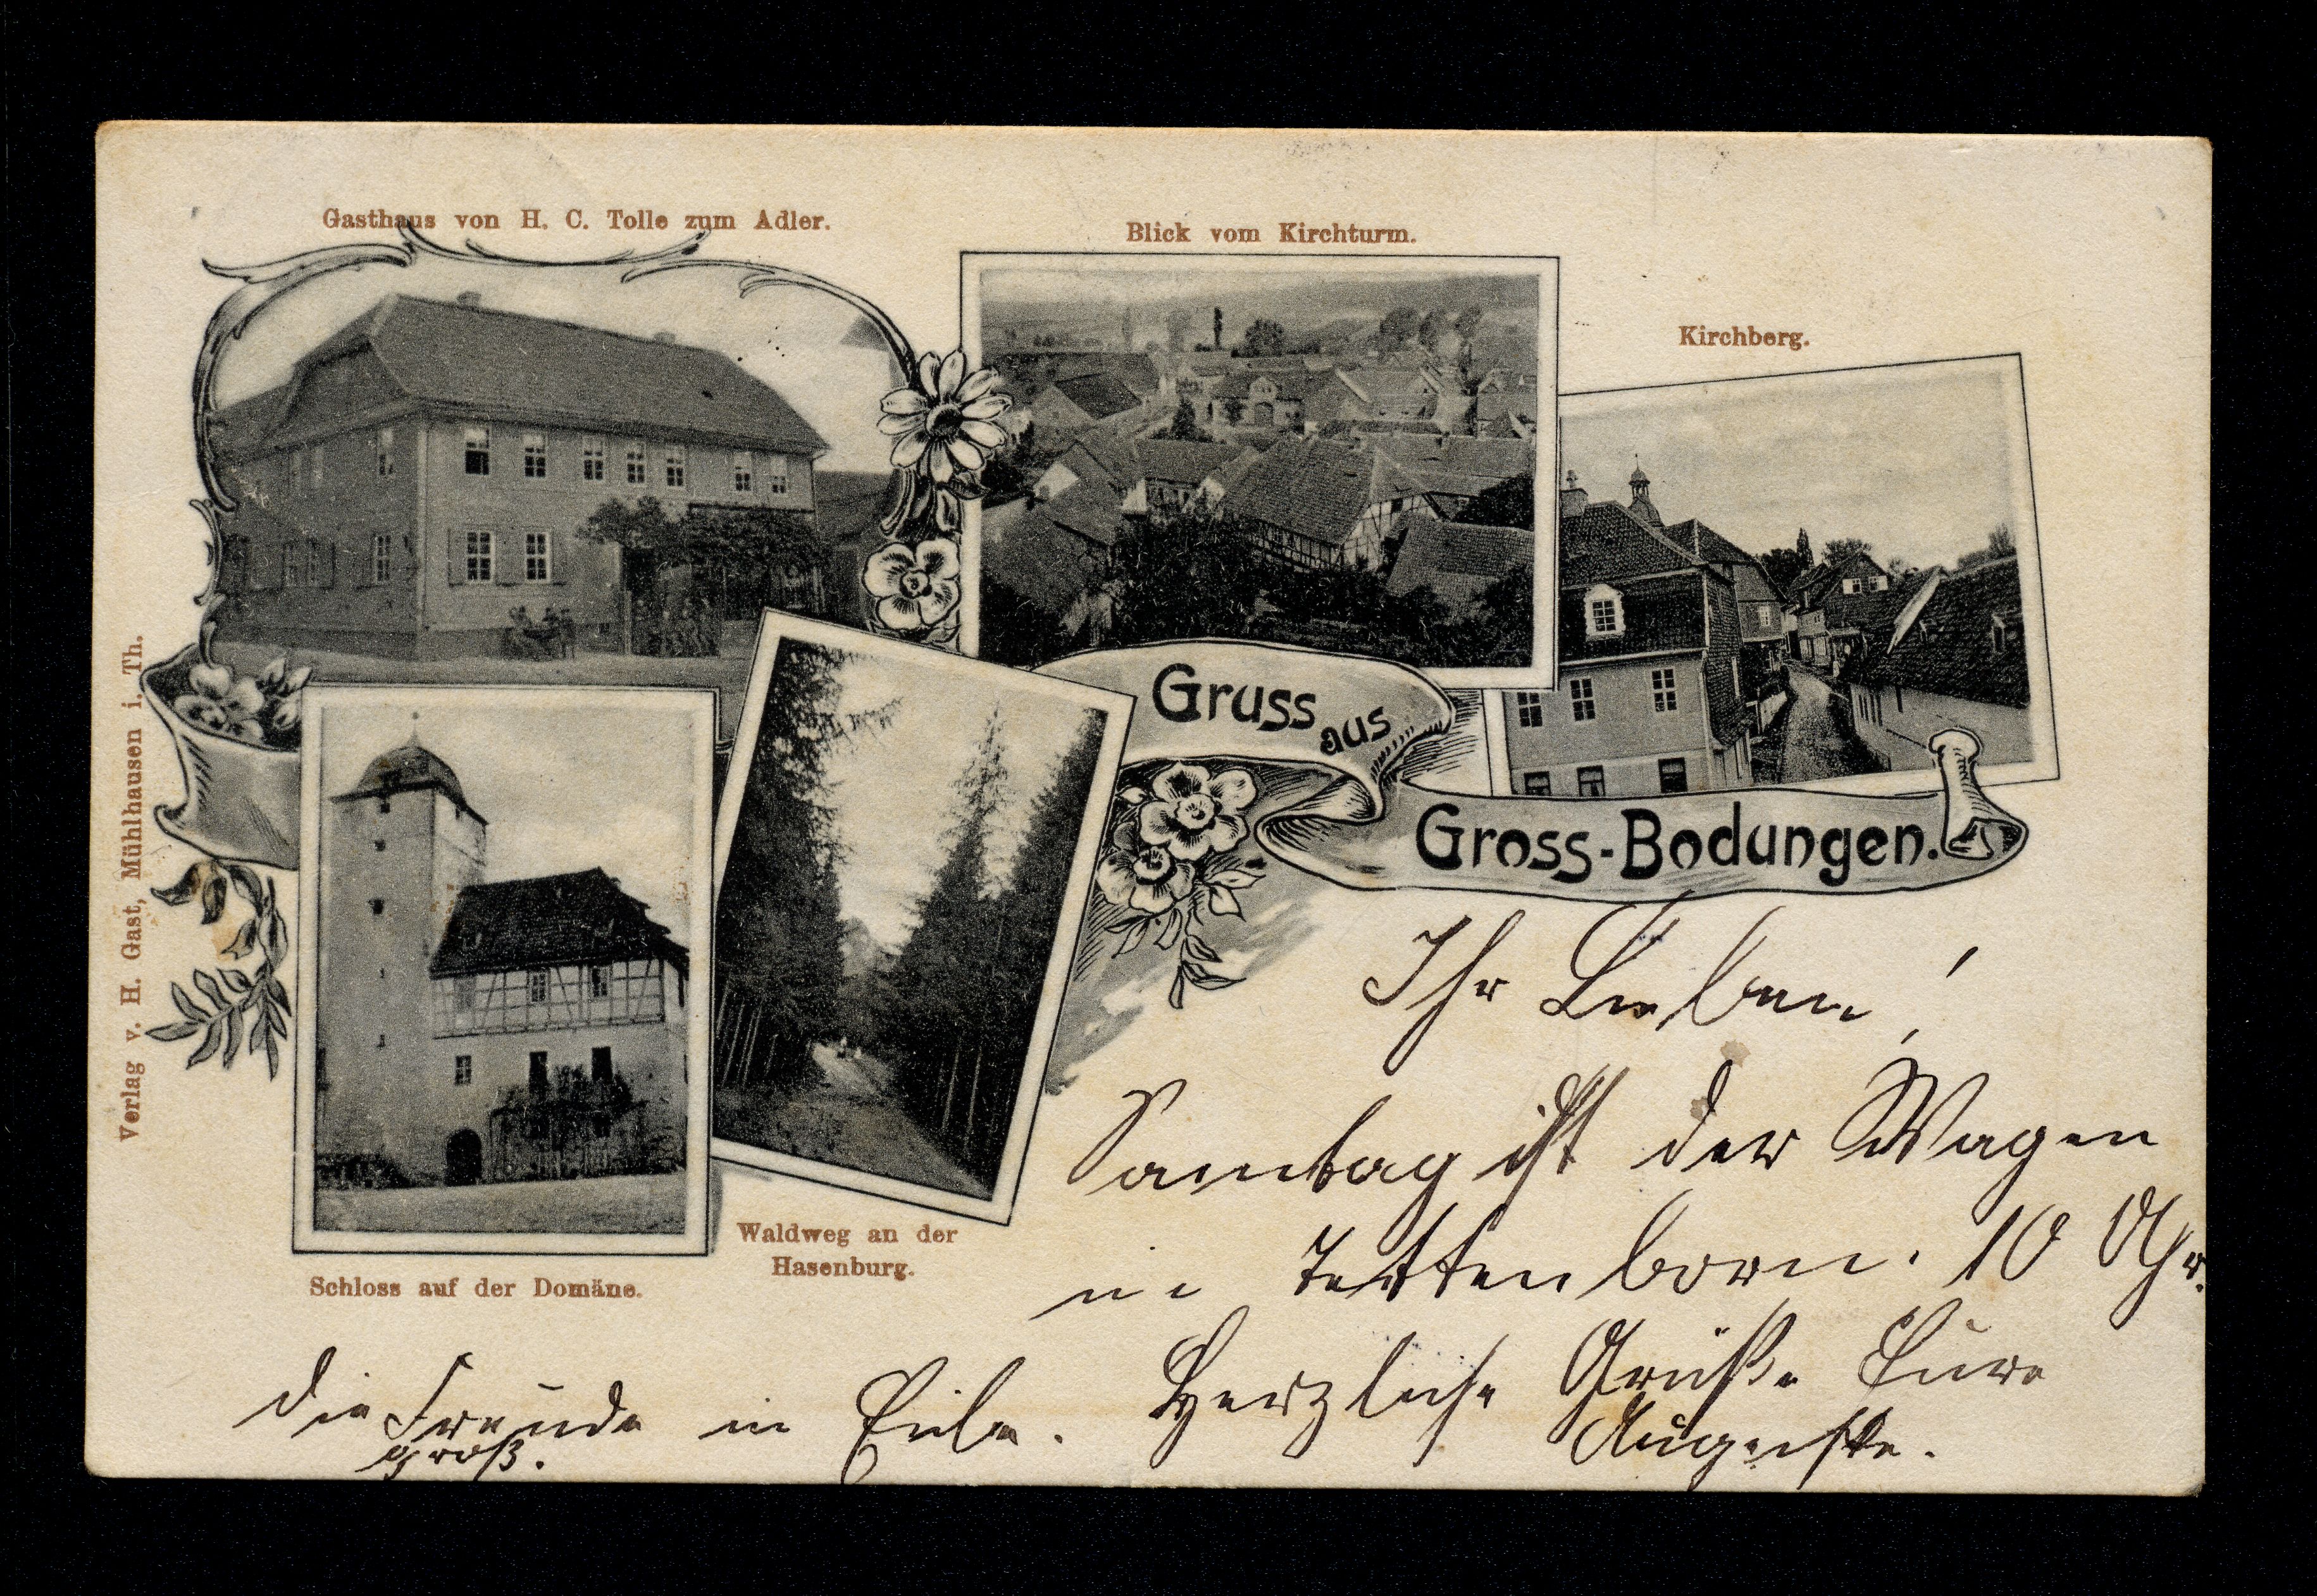 Gasthaus von H. C. Tolle zum Adler.
Blick vom Kirchturm.
Kirchberg.
Gruss aus
Gross-Bodungen.
Verlag v. H. Gast, Mühlhausen i. Th.
Schloss auf der Domäne.
Waldweg an der
Hasenburg.
Ihr Lieben!
Samtag ist der Wagen
in Tettenborn. 10 Uhr.
Herzliche Grüße Eure
Auguste.
die Freude in
groß.